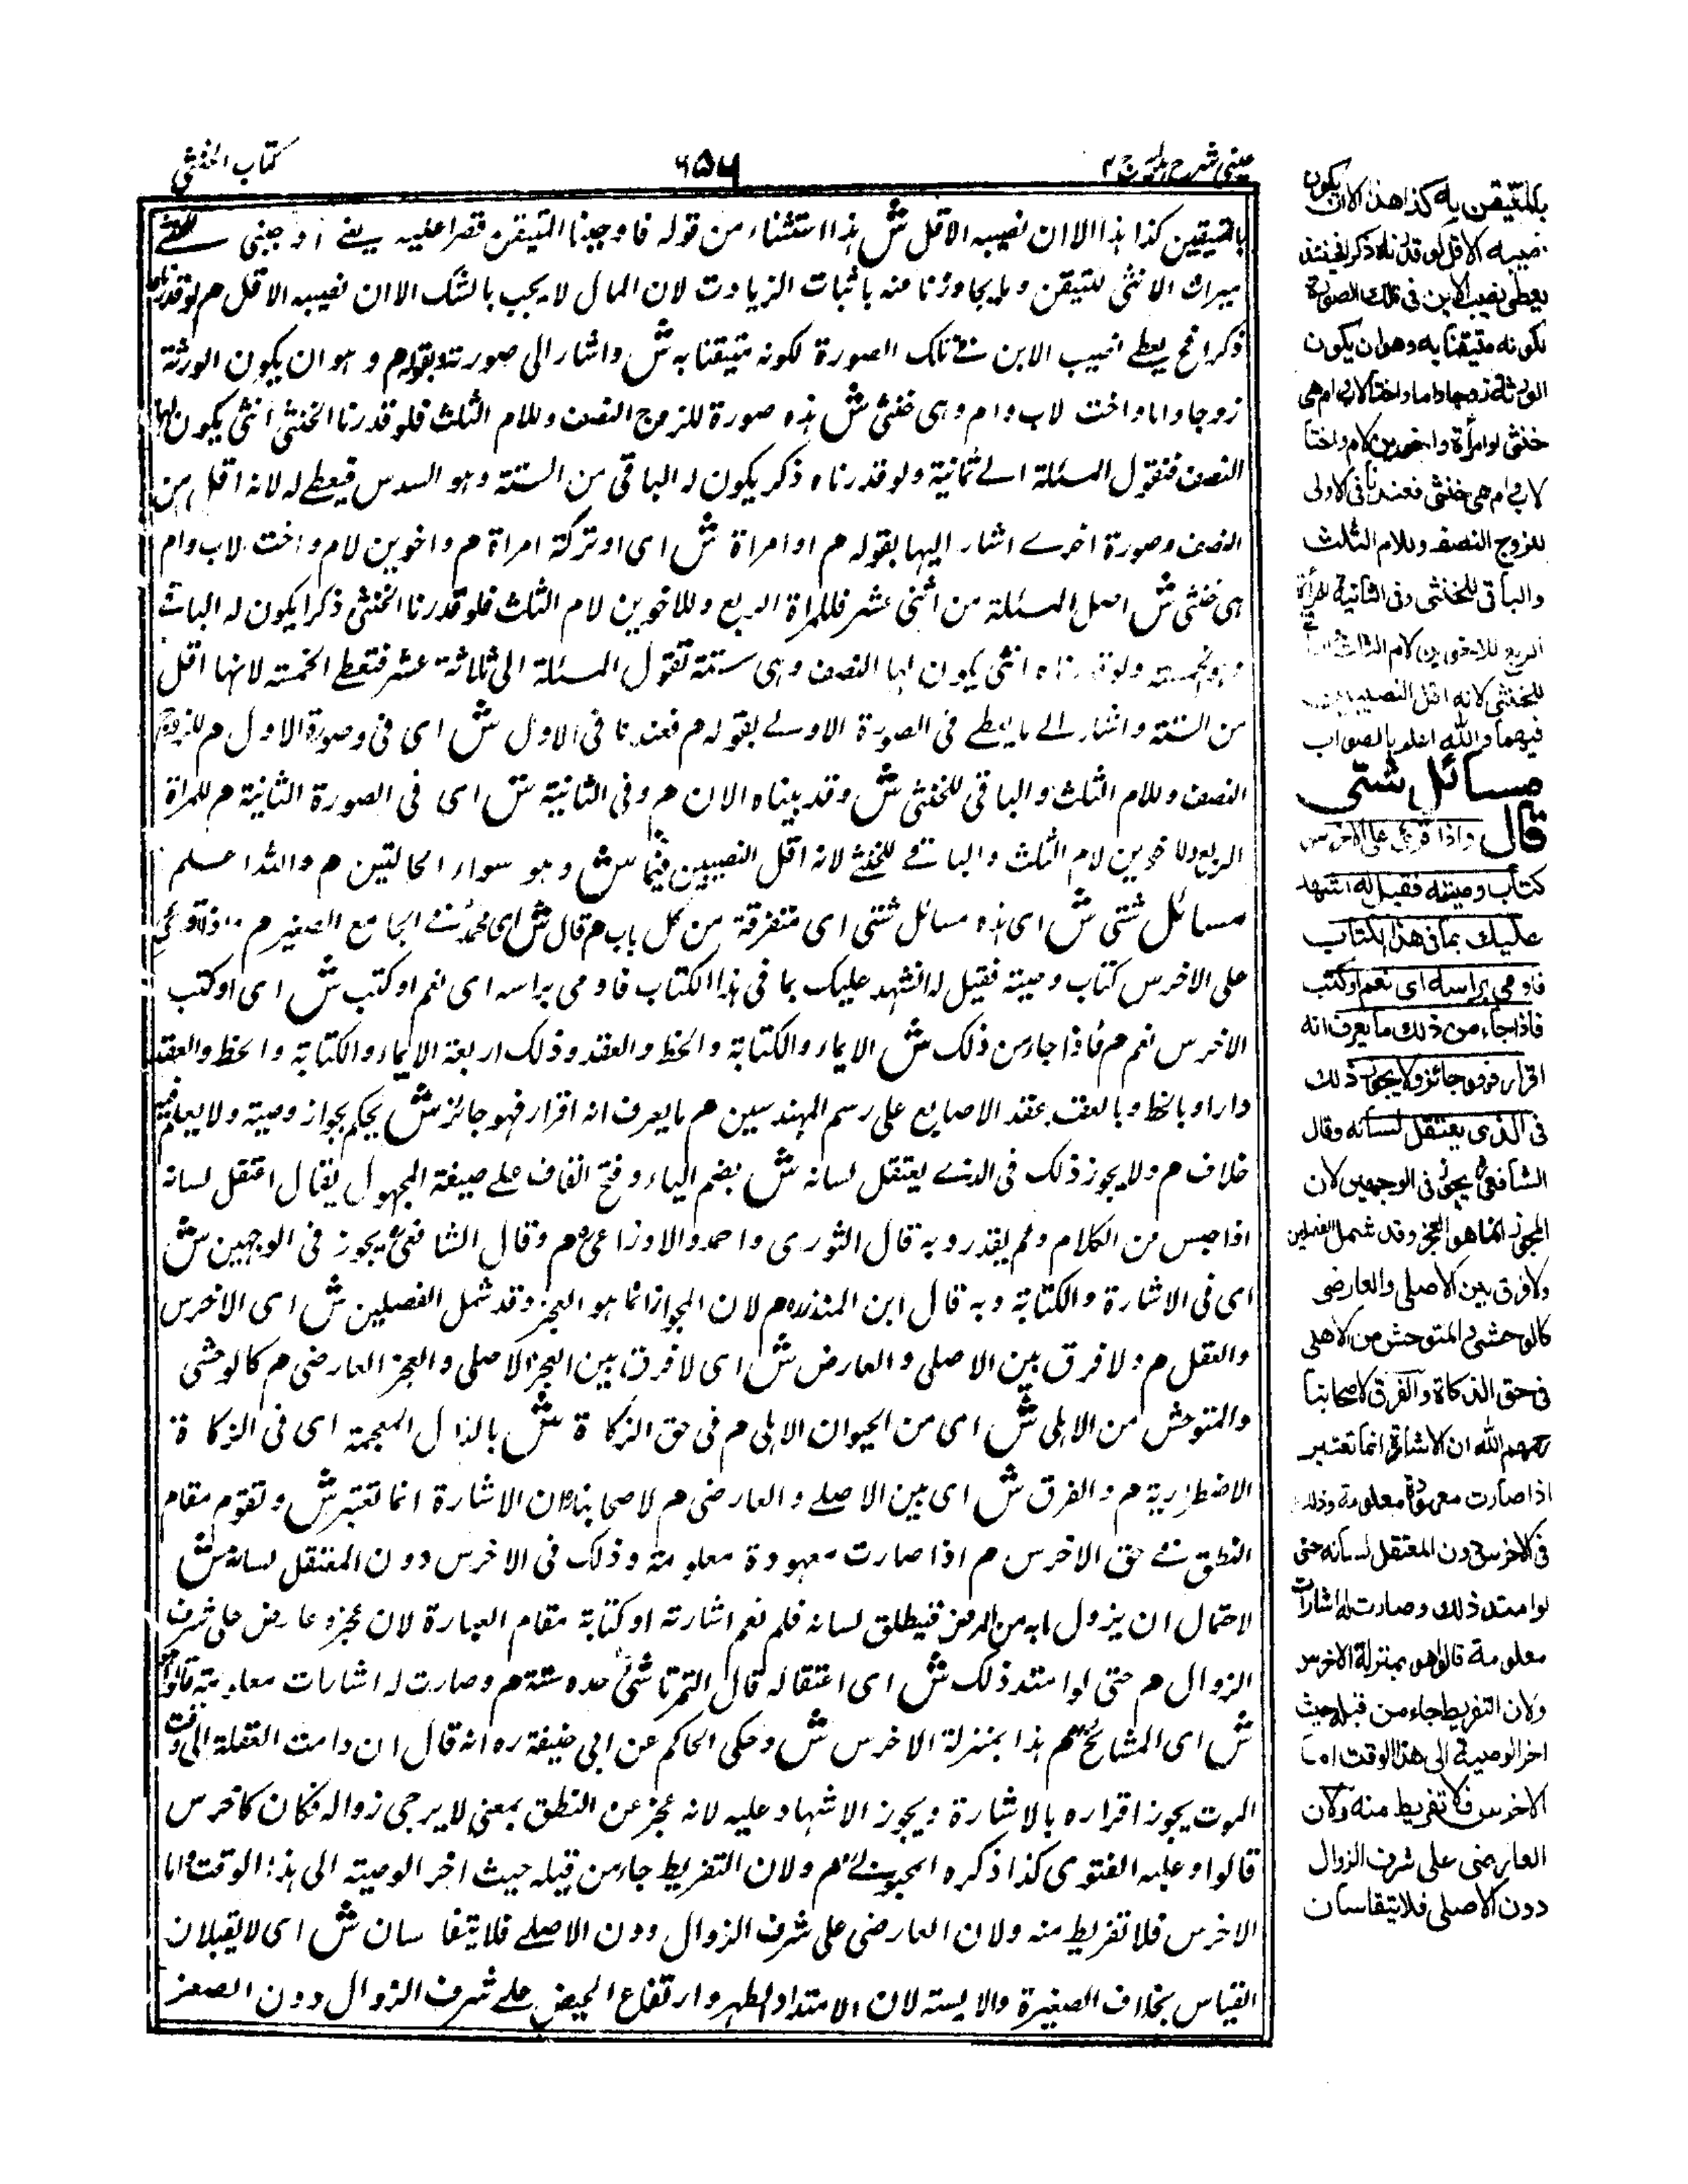 عینی شرح ہدایہ ج ۴
۶۵۶
کتاب الخنثی
بالمتیقن کذا ہذا الا ان نصیبہ الاقل ش ہذا استثناء من قولہ فاوجبنا المتیقن قصرا علیہ یعنی اوجبنی
میراث الانثی للتیقن ولم یجاوزنا منہ باثبات الزیادت لان المال لا یجب بالشک الا ان نصیبہ الاقل م لو قدرناہ
ذکرا فح یعطے نصیب الابن فے تلک الصورة لکونہ متیقنا بہ ش واشار الی صورتہ بقولہ م وہو ان یکون الورثة
زوجا واما واخت لاب وام وہی خنثی ش ہذہ صورة للزوج النصف وللام الثلث فلو قدرنا الخنثی انثی یکون لہا
النصف فتقول المسئلة الے ثمانیة ولو قدرناہ ذکر یکون لہ الباقی من الستة وہو السدس فیعطے لہ لانہ اقل من
النصف وصورة اخرے اشار الیہا بقولہ م او امراة ش ای او ترکة امراة م واخوین لام واخت لاب وام
ہی خنثی ش اصل المسئلة من اثنی عشر فللمراة الربع وللاخوین لام الثلث فلو قدرنا الخنثی ذکرا یکون لہ الباقے
وہو خمسة ولو قدرناہ انثی یکون لہا النصف وہی ستة تقول المسئلة الی ثلاثة عشر فتعطے الخمسة لانہا اقل
من الستة واشار الے ما یعطے فی الصورة الاولے بقولہ م فعندنا فی الاول ش ای فی وصورة الاول م للزوج
النصف وللام الثلث والباقی للخنثی ش وقد بیناہ الان م وفی الثانیة ش ای فی الصورة الثانیة م للمراة
الربع وللاخوین لام الثلث والباقے للخنثے لانہ اقل النصیبین فیہما ش وہو سواء الحالتین م واللہ اعلم
مسائل شتی ش ای ہذہ مسائل شتی ای متفرقة من کل باب م قال ش ای محمدؒ فے الجامع الصغیر م واذا قرئ
علی الاخرس کتاب وصیتہ فقیل لہ انشہد علیک بما فی ہذا الکتاب فاومی براسہ ای نعم او کتب ش ای او کتب
الاخرس نعم م فاذا جاء من ذلک ش الایماء والکتابة والخط والعقد وذلک اربعة الایماء والکتابة والخط والعقد
دارا وبالخط وبالعقد عقد الاصابع علی رسم المہندسین م ما یعرف انہ اقرار فہو جائز ش یحکم بجواز وصیة ولا یعلم فیہ
خلاف م ولا یجوز ذلک فی الذے یعتقل لسانہ ش بضم الیاء وفتح القاف علے صیغة المجہول یقال اعتقل لسانہ
اذا حبس من الکلام ولم یقدر وبہ قال الثوری واحمد والاوزاعیؒ م وقال الشافعیؒ یجوز فی الوجہین ش
ای فی الاشارة والکتابة وبہ قال ابن المنذرہ م لان المجوز انما ہو العجز وقد شمل الفصلین ش ای الاخرس
والعقل م ولا فرق بین الاصلی والعارض ش ای لا فرق بین العجز الاصلی والعجز العارضی م کالوحشی
والمتوحش من الاہلی ش ای من الحیوان الاہلی م فی حق الزکاة ش بالذال المعجمة ای فی الزکاة
الاضطراریة م والفرق ش ای بین الاصلے والعارضی م لاصحابناؒ ان الاشارة انما تعتبر ش وتقوم مقام
النطق فے حق الاخرس م اذا صارت معہودة معلومة وذلک فی الاخرس دون المعتقل لسانہ ش
لاحتمال ان یزول مابہ من المرض فینطلق لسانہ فلم نعم اشارتہ او کتابة مقام العبارة لان عجزہ عارض علی شرف
الزوال م حتی لو امتد ذلک ش ای اعتقالہ قال التمرتاشیؒ حدہ سنة م وصارت لہ اشارات معلومة قالوا
ش ای المشائخؒ م ہذا بمنزلة الاخرس ش وحکی الحاکم عن ابی حنیفة رہ انہ قال ان دامت العقلة الی وقت
الموت یجوز اقرارہ بالاشارة ویجوز الاشہاد علیہ لانہ عجز عن النطق بمعنی لا یرجی زوالہ فکان کاخرس
قالوا وعلیہ الفتوی کذا ذکرہ المحبوبےؒ م ولان التفریط جاء من قبلہ حیث اخر الوصیتہ الی ہذا الوقت واما
الاخرس فلا تفریط منہ ولان العارضی علی شرف الزوال دون الاصلے فلا یتقاسان ش ای لا یقبلان
القیاس بخلاف الصغیرة والایسة لان الامتداد الطہر وارتفاع الحیض علے شرف الزوال دون الصغر
بالمتیقن به كذا هذا الا ان يكون
نصيبه الاقل لو قدرناه ذكرا فحينئذ
يعطى نصيب الابن فى تلك الصورة
لكونه متيقنا به وهو ان يكون
الورثة زوجا واما واختا لاب وام هى
خنثى او امرأة واخوين لام واختا
لاب وام هى خنثى فعندنا فى الاولى
للزوج النصف وللام الثلث
والباقى للخنثى وفى الثانية للمرأة
الربع للاخوين لام الثلث
للخنثى لانه اقل النصيبين
فيهما والله اعلم بالصواب
مسائل شتى
قال واذا قرئ على الاخرس
كتاب وصيته فقيل له انشهد
عليك بما فى هذا الكتاب
فاومى براسه اى نعم او كتب
فاذا جاء من ذلك ما يعرف انه
اقرار فهو جائز ولا يجوز ذلك
فى الذى يعتقل لسانه وقال
الشافعى يجوز فى الوجهين لان
المجوز انما هو العجز وقد شمل الفصلين
ولا فرق بين الاصلى والعارضى
كالوحشى والمتوحش من الاهلى
فى حق الذكاة والفرق لاصحابنا
رحمهم الله ان الاشارة انما تعتبر
اذا صارت معهودة معلومة وذلك
فى الاخرس دون المعتقل لسانه حتى
لو امتد ذلك وصارت له اشارات
معلومة قالوا هو بمنزلة الاخرس
ولان التفريط جاء من قبله حيث
اخر الوصية الى هذا الوقت اما
الاخرس فلا تفريط منه ولان
العارضى على شرف الزوال
دون الاصلى فلا يتقاسان